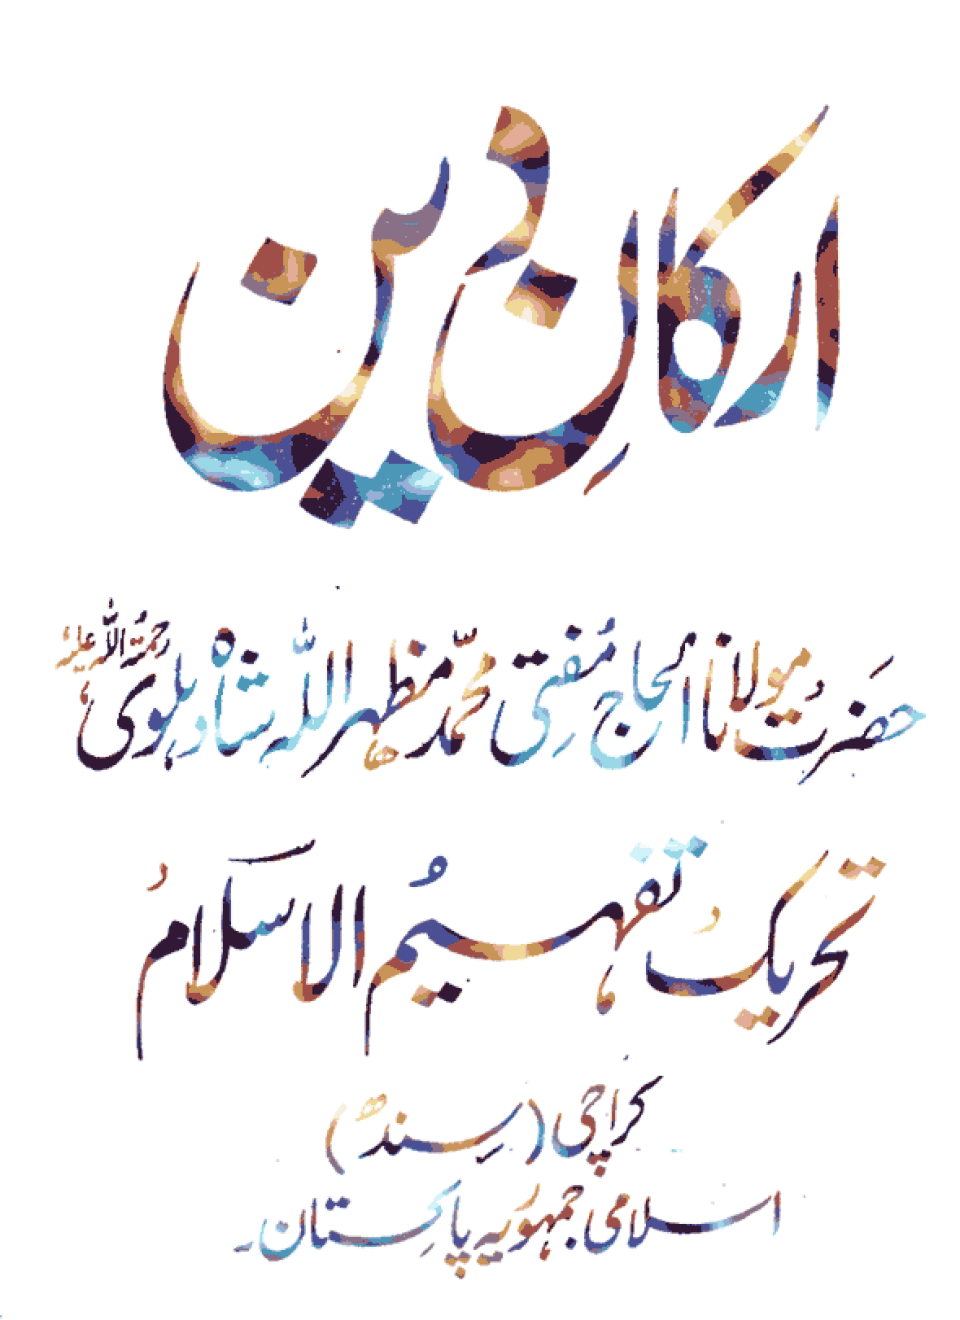 ارکانِ دین
حضرت مولانا الحاج مُفتی محمّد مظہر اللہ شاہ دہلوی رحمۃ اللہ علیہ
تحریک تفہیمُ الاسلام
کراچی (سِندھ)
اسلامی جمہوریہ پاکِستان۔